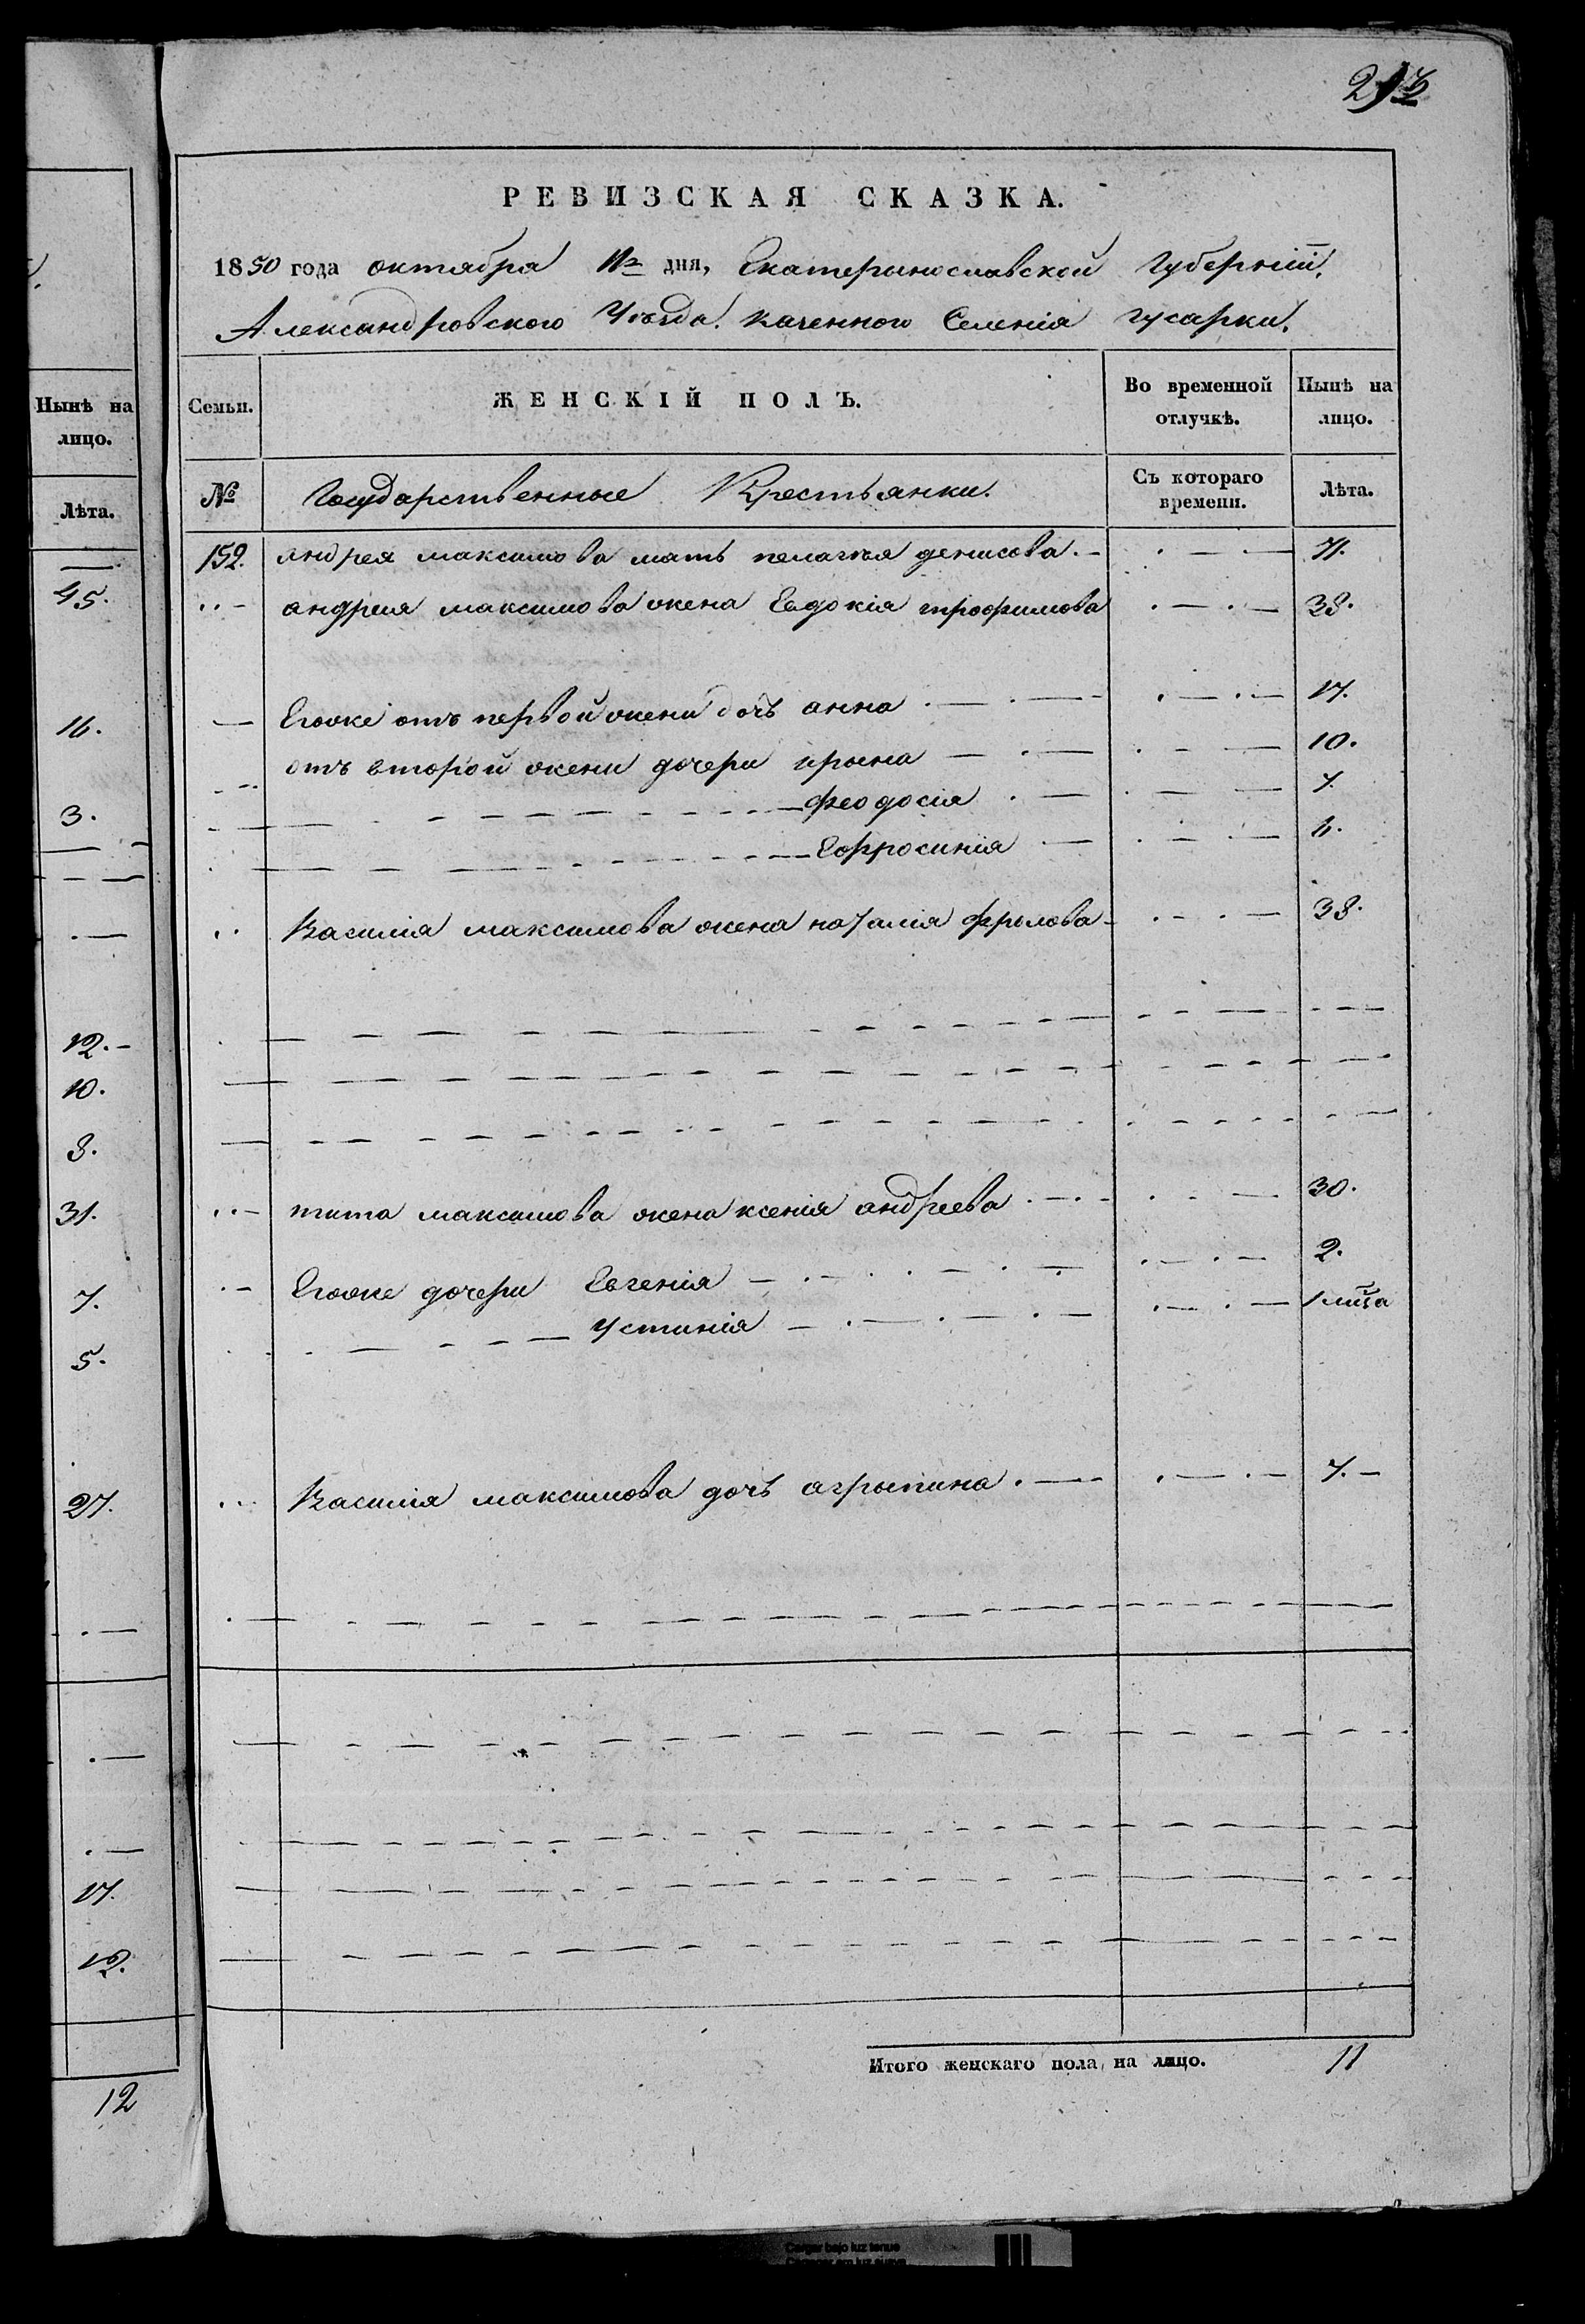 РЕВИЗСКАЯ СКАЗКА.
1850 года октября 11го дня, Екатеринославской Губерніи,
Александровского Уѣзда. казенного Селенія гусарки.
Нынѣ на лицо.
Лѣта.
45.
16.
3.
12.
10.
8.
31.
7.
5.
27.
17.
12.
12
Семьи. ЖЕНСКІЙ ПОЛЪ. Во временной отлучкѣ. Нынѣ на лицо.
№ Государственные Крестьянки. Съ котораго времени. Лѣта.
152. андрея максимова мать пелагея денисова 71.
андрея максимова жена Евдокія трофимова 38.
Егожѣ отъ первой жени дочь анна 17.
отъ второй жени дочери ирына 10.
феодосія 7.
Ефросинія 4.
Василія максимова жена наталія фрылова 38.
тита максимова жена ксенія андреева 30.
Егоже дочери Евгенія 2.
Устинія 1 мца
Василія максимова дочь агрыпина 7.
Итого женскаго пола на лицо. 11